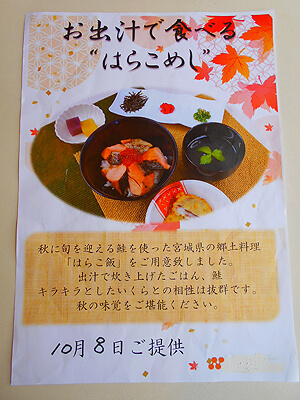 お出汁で食べる
“はらこめし”
秋に旬を迎える鮭を使った宮城県の郷土料理
「はらこ飯」をご用意致しました。
出汁で炊き上げたごはん、鮭
キラキラとしたいくらとの相性は抜群です。
秋の味覚をご堪能ください。
10月8日ご提供